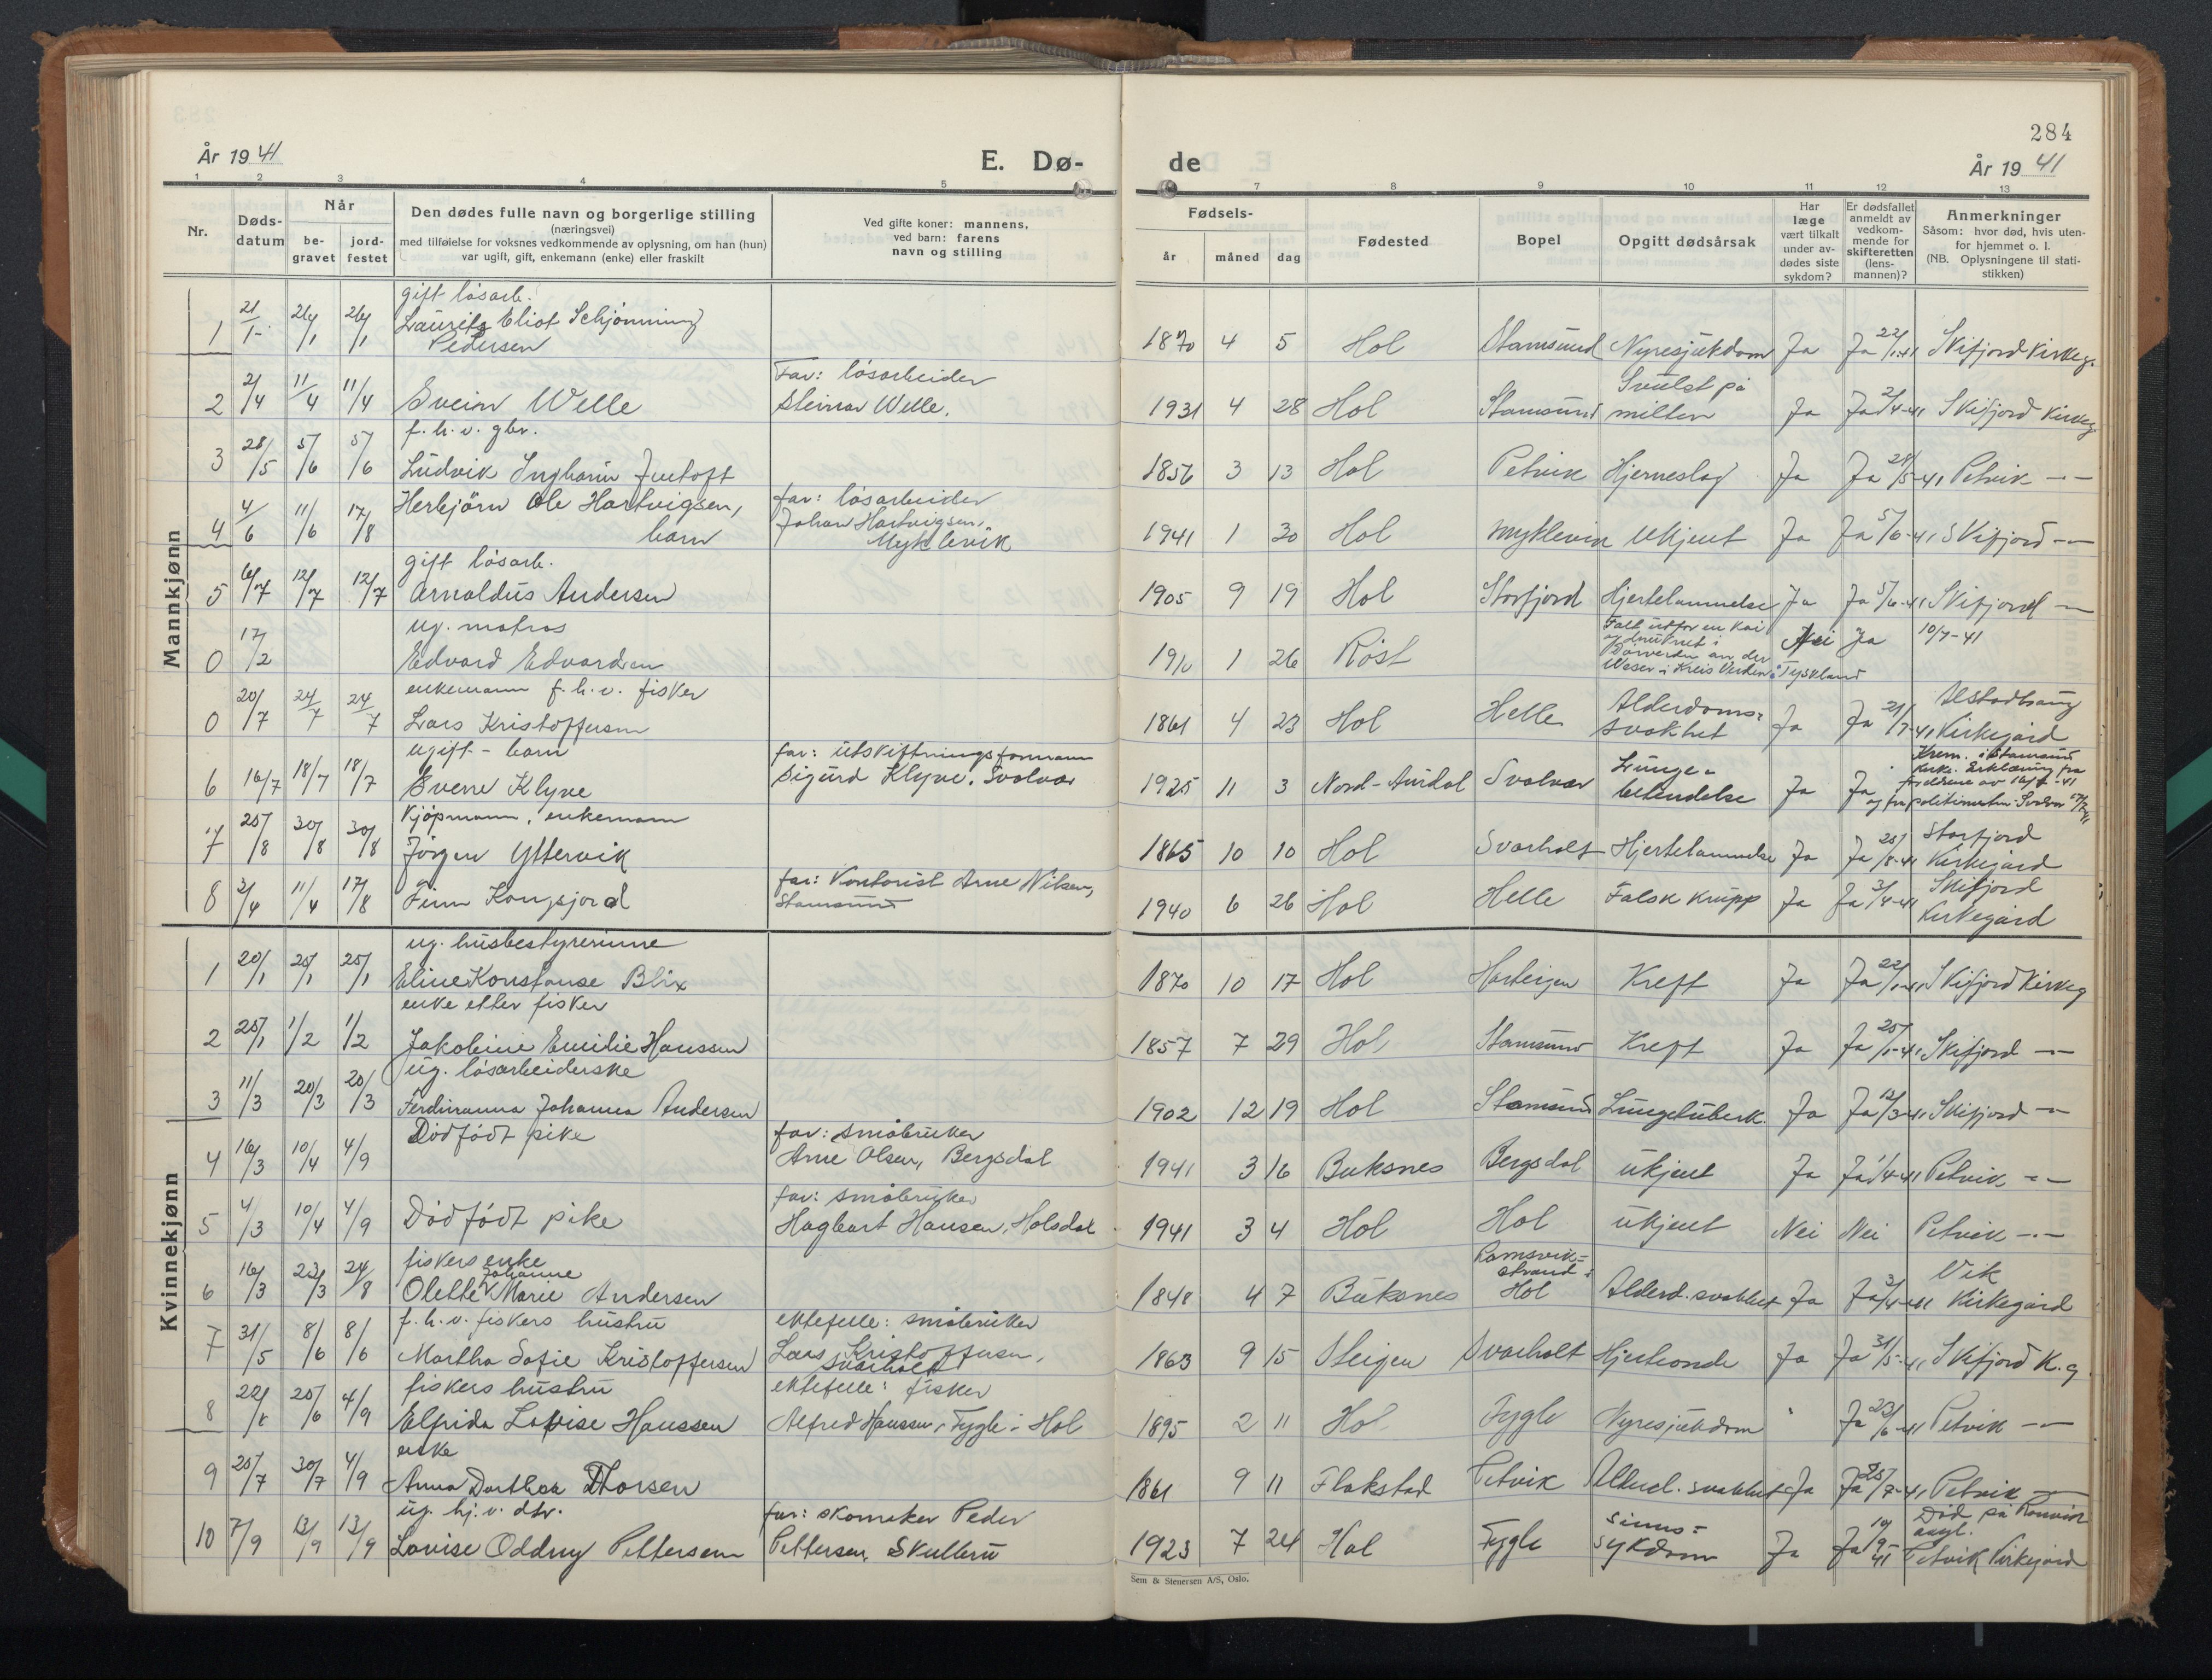 284
År 1941 E. Dø- de År 1941
1 2 3 4 5 7 8 9 10 11 12 13
Nr. Døds-datum Når be-gravet jord-festet
Den dødes fulle navn og borgerlige stilling
(næringsvei)
med tilføielse for voksnes vedkommende av oplysning, om han (hun)
var ugift, gift, enkemann (enke) eller fraskilt
Ved gifte koner: mannens,
ved barn: farens
navn og stilling
Fødsels- år måned dag
Fødested
Bopel
Opgitt dødsårsak
Har læge vært tilkalt under av-dødes siste sykdom?
Er dødsfallet anmeldt av vedkom-mende for skifteretten (lens-mannen)?
Anmerkninger
Såsom: hvor død, hvis uten-
for hjemmet o. l.
(NB. Oplysningene til stati-
stikken)
Mannkjønn
gift løsarb.
1 21/1 26/1 26/1 Laurits Eliot Schjønning
Pedersen 1870 4 5 Hol Stamsund Nyresjukdom Ja Ja 22/1-41 Skifjord Kirkeg.
Far: løsarbeider Svulst på
2 2/4 11/4 11/4 Svein Welle Steinar Welle. 1931 4 28 Hol Stamsund milten Ja Ja 2/4-41 Skifjord Kirkeg
f.h.v. gbr.
3 28/5 5/6 5/6 Ludvik Ingharm Juetoft 1856 3 13 Hol Petvik Hjerneslag Ja Ja 28/5-41 Petvik -"-
Herbjørn Ole Hartvigsen, far: løsarbeider
4 4/6 11/6 17/8 barn Johan Hartvigsen,
Myklevik 1941 1 30 Hol Myklevik Ukjent Ja Ja 5/6-41 Skifjord -"-
gift løsarb.
5 6/7 12/7 12/7 Arnoldus Andersen 1905 9 19 Hol Storfjord Hjertelammelse Ja Ja 5/6-41 Skifjord -"-
ug. matros Falt utfor en kai
0 17/2 Edvard Edvardsen 1910 1 26 Röst og druknet i
Dörverden an der
Weser i Kreis Verden i Tyskland Nei Ja 10/7-41
enkemann f.h.v. fisker
0 20/7 24/7 24/7 Lars Kristoffersen 1861 4 23 Hol Helle Alderdoms-
svakhet Ja Ja 21/7-41 Alstadhaug
Kirkegård
ugift - barn far: utskiftningsformann
6 16/7 18/7 18/7 Sverre Klyve Sigurd Klyve. Svolvær 1925 11 3 Nord-Aurdal Svolvær Lunge-
betendelse Ja Ja Krem. i Stamsund
kirke. Erklæring fra
foreldrene av 16/7-41
og fra politimesteren Svolvær
Kjøpmann, enkemann
7 25/8 30/8 30/8 Jörgen Yttervik 1865 10 10 Hol Svarholt Hjertelammelse Ja Ja 25/8-41 Storfjord
Kirkegård
8 2/4 11/4 17/8 Finn Kongsjord far: Kontorist Arne Nilsen,
Stamsund 1940 6 26 Hol Helle Falsk Krupp Ja Ja 3/4-41 Skifjord
Kirkegård
Kvinnekjønn
ug. husbestyrerinne
1 20/1 25/1 25/1 Eline Konstanse Blix 1870 10 17 Hol Hasteigen Kreft Ja Ja 22/1-41 Skifjord Kirkeg
enke etter fisker
2 25/1 1/2 1/2 Jakobine Emilie Hanssen 1857 7 29 Hol Stamsund Kreft Ja Ja 25/1-41 Skifjord -"-
ug. løsarbeiderske
3 11/3 20/3 20/3 Ferdinanna Johanna Andersen 1902 12 19 Hol Stamsund Lungetuberk. Ja Ja 12/3-41 Skifjord -"-
Dødfødt pike far: småbruker
4 16/3 10/4 4/9 Arne Olsen, Bergsdal 1941 3 16 Buksnes Bergsdal ukjent Ja Ja 1/4-41 Petvik -"-
far: småbruker
5 4/3 10/4 4/9 Dødfødt pike Hagbart Hansen, Holsdal 1941 3 4 Hol Hol ukjent Nei Nei Petvik -"-
fiskers enke Ramsvik-
strand i
6 16/3 23/3 24/8 Olette Johanne Marie Andersen 1848 4 7 Buksnes Hol Alderd. svakhet Ja Ja 3/4-41 Vik
Kirkegård
f.h.v. fiskers hustru ektefelle: småbruker
7 31/5 8/6 8/6 Martha Sofie Kristoffersen Lars Kristoffersen,
Svarholt 1863 9 15 Steigen Svarholt Hjerteonde Ja Ja 31/5-41 Skifjord K.g.
fiskers hustru ektefelle: fisker
8 22/6 25/6 4/9 Elfrida Lovise Hanssen Alfred Hanssen, Fygle i Hol 1895 2 11 Hol Fygle Nyresjukdom " Ja 23/6-41 Petvik -"-
enke
9 25/7 30/7 4/9 Anna Dorthea Thorsen 1861 9 11 Flakstad Petvik Alderd. svakhet Ja Ja 25/7-41 Petvik -"-
ug. hj.v. dtr. far: skomaker Peder
10 7/9 13/9 13/9 Lovise Oddny Pettersen Pettersen, Skulbru 1923 7 24 Hol Fygle Sinns-
sykdom Ja Ja 10/9-41 Død på Rønvik
asyl.
Petvik Kirkegård
Sem & Stenersen A/S, Oslo.